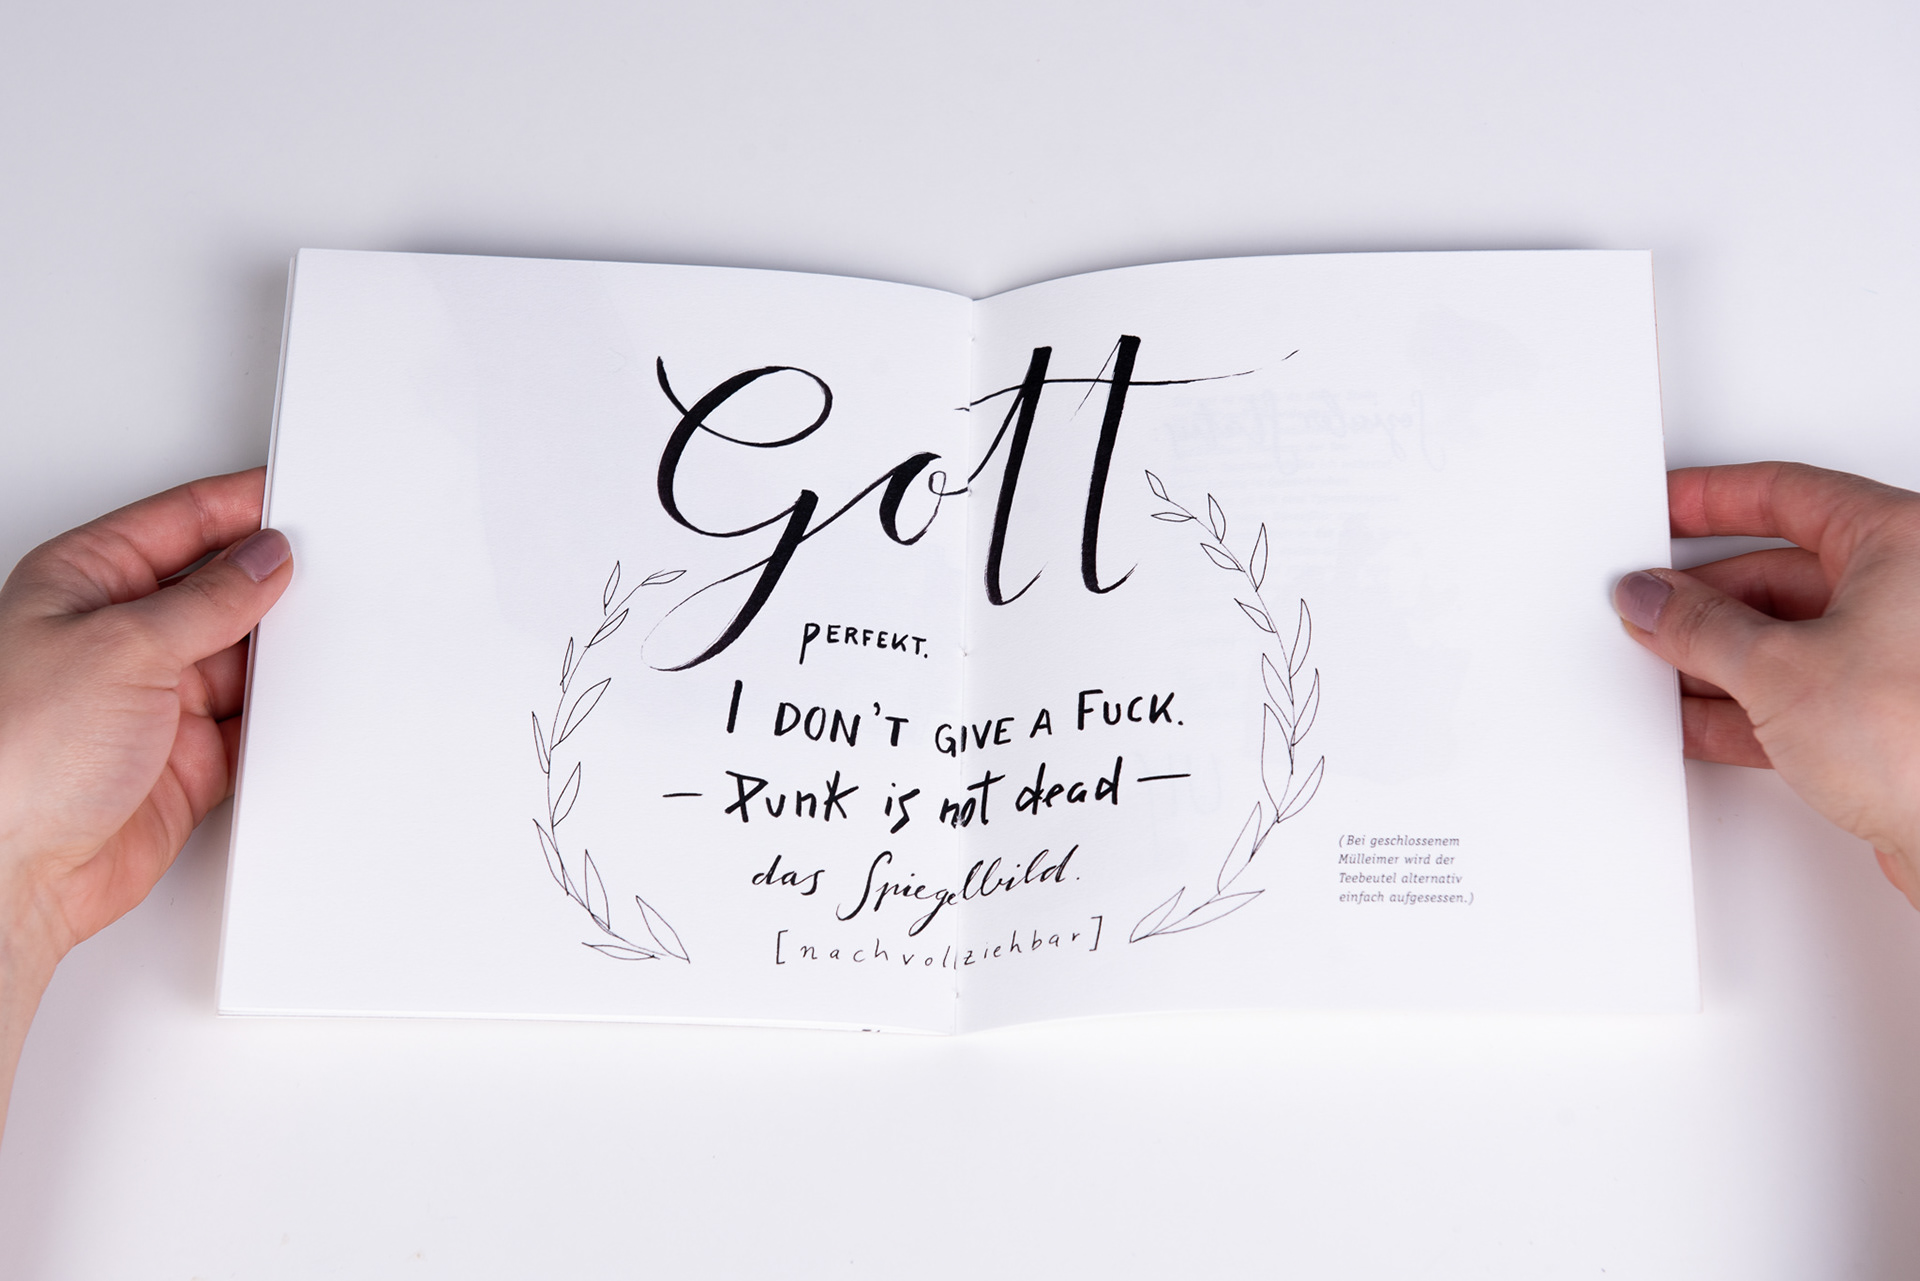 Gott
PERFEKT.
I DON'T GIVE A FUCK.
— Punk is not dead —
das Spiegelbild.
[nachvollziehbar]
(Bei geschlossenem
Mülleimer wird der
Teebeutel alternativ
einfach aufgesessen.)